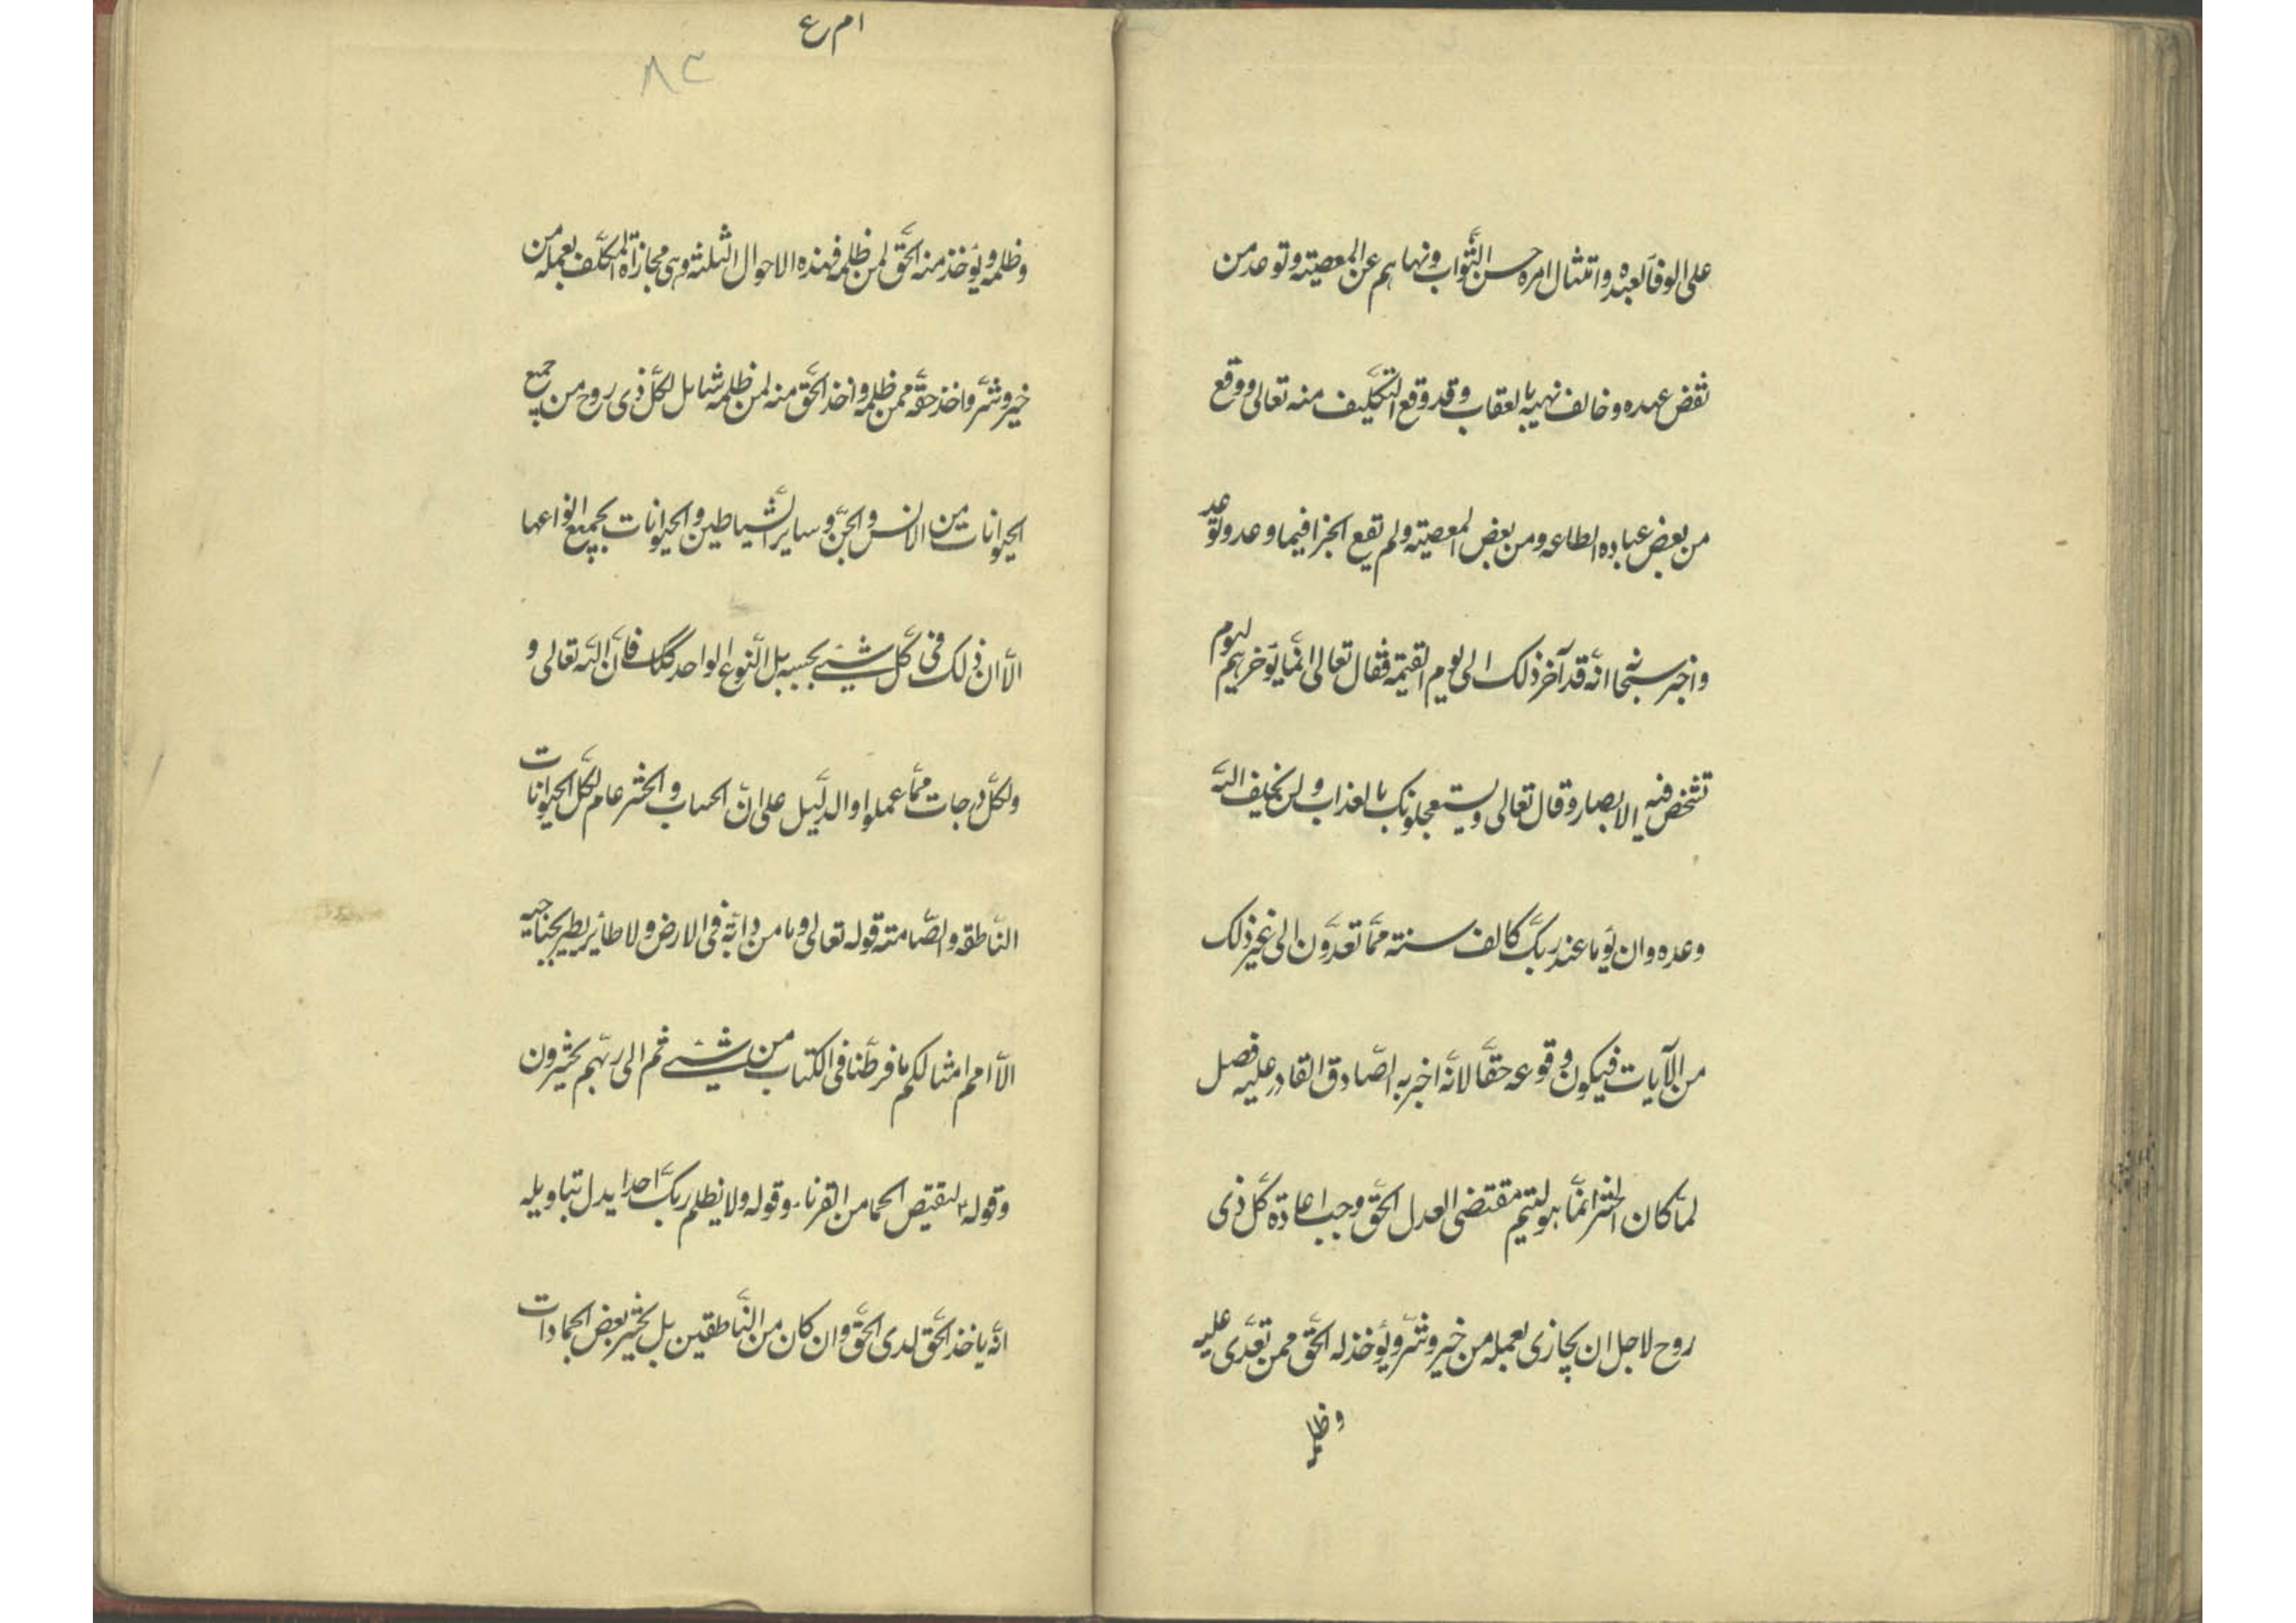 على الوفآء بعهده وامتثال امره حسن الثّواب ونهاهم عن المعصيته وتوعد من
نقض عهده وخالف نهيه بالعقاب وقد وقع التّكليف منه تعالى ووقع
من بعض عباده الطاعه ومن بعض المعصيته ولم تقع الجزا فيما وعد وتوعد
واخبر سبحانه انّه قد آخر ذلك الى يوم القيمة فقال تعالى انّما يؤخرهم ليوم
تشخص فيه الابصار وقال تعالى ويستعجلونك بالعذاب ولن يخلف اللّه
وعده وان يوما عند ربّك كالف سنته ممّا تعدّون الى غير ذلك
من الآيات فيكون وقوعه حقّا لانّه اخبر به الصّادق القادر عليه فصل
لمّا كان الحشر انّما هو لتيم مقتضى العدل الحقّ وجب اعادة كلّ ذى
روح لاجل ان يجازى بعمله من خير وشرّ ويؤخذ له الحقّ ممن تعدّى عليه
وظلمه
ا م ع
٨٣
وظلمه ويؤخذ منه الحقّ لمن ظلمه فهذه الاحوال الثلثه وهى مجازاة المكلّف بعمله من
خير وشرّ واخذ حقّه ممن ظلمه واخذ الحقّ منه لمن ظلمه شامل لكلّ ذى روح من جميع
الحيوانات من الانس والجنّ وساير الشّياطين والحيوانات بجميع انواعها
الّا ان ذلك فى كلّ شيئ بحسبه بل النّوع الواحد كك فانّ اللّه تعالى و
ولكلّ درجات ممّا عملوا والدّليل على انّ الحساب والحشر عام لكلّ الحيوانات
النّاطقه والصّامته قوله تعالى وما من دابّة فى الارض ولا طائر يطير بجناحيه
الّا امم امثالكم ما فرطّنا فى الكتاب من شيئ ثم الى ربّهم يحشرون
وقوله ليقتص الجما من القرنآء وقوله ولا يظلم ربّك احدا يدل بتاويله
انّه ياخذ الحقّ لدى الحقّ وان كان من النّاطقين بل يحشر بعض الجمادات